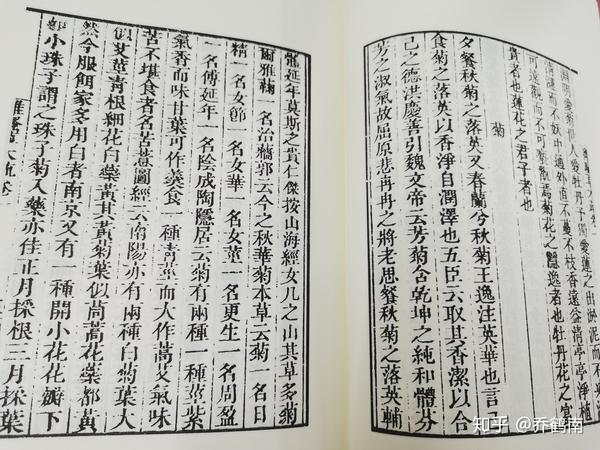 淵明愛菊世人愛牡丹予獨愛蓮之出淤泥而不染
清漣而不妖中通外直不蔓不枝香遠益清亭亭淨植
可遠觀而不可褻翫焉菊花之隱逸者也牡丹花之富
貴者也蓮花之君子者也
菊
夕餐秋菊之落英又春蘭兮秋菊王逸注英華也言己
食菊之落英以香淨自潤澤也五臣云取其香潔以合
己之德洪慶善引魏文帝云芳菊含乾坤之純和體芬
芳之淑氣故屈原悲冉冉之將老思餐秋菊之落英輔
體延年莫斯之貴仁傑按山海經女几之山其草多菊
爾雅蘜一名治蘠郭云今之秋華菊本草云菊一名日
精一名女節一名女華一名女莖一名更生一名周盈
一名傅延年一名陰成陶隱居云菊有兩種一種莖紫
氣香而味甘葉可作羹食一種青莖而大作蒿艾氣味
苦不堪食者名苦薏圖經云南陽亦有兩種白菊葉大
似艾莖青根細花白蘂黃其黃菊葉似茼蒿花蘂都黃
然今服餌家多用白者南京又有一種開小花花瓣下
如小珠子謂之珠子菊入藥亦佳正月採根三月採葉
離騷草木疏卷
知乎 @乔鹤南